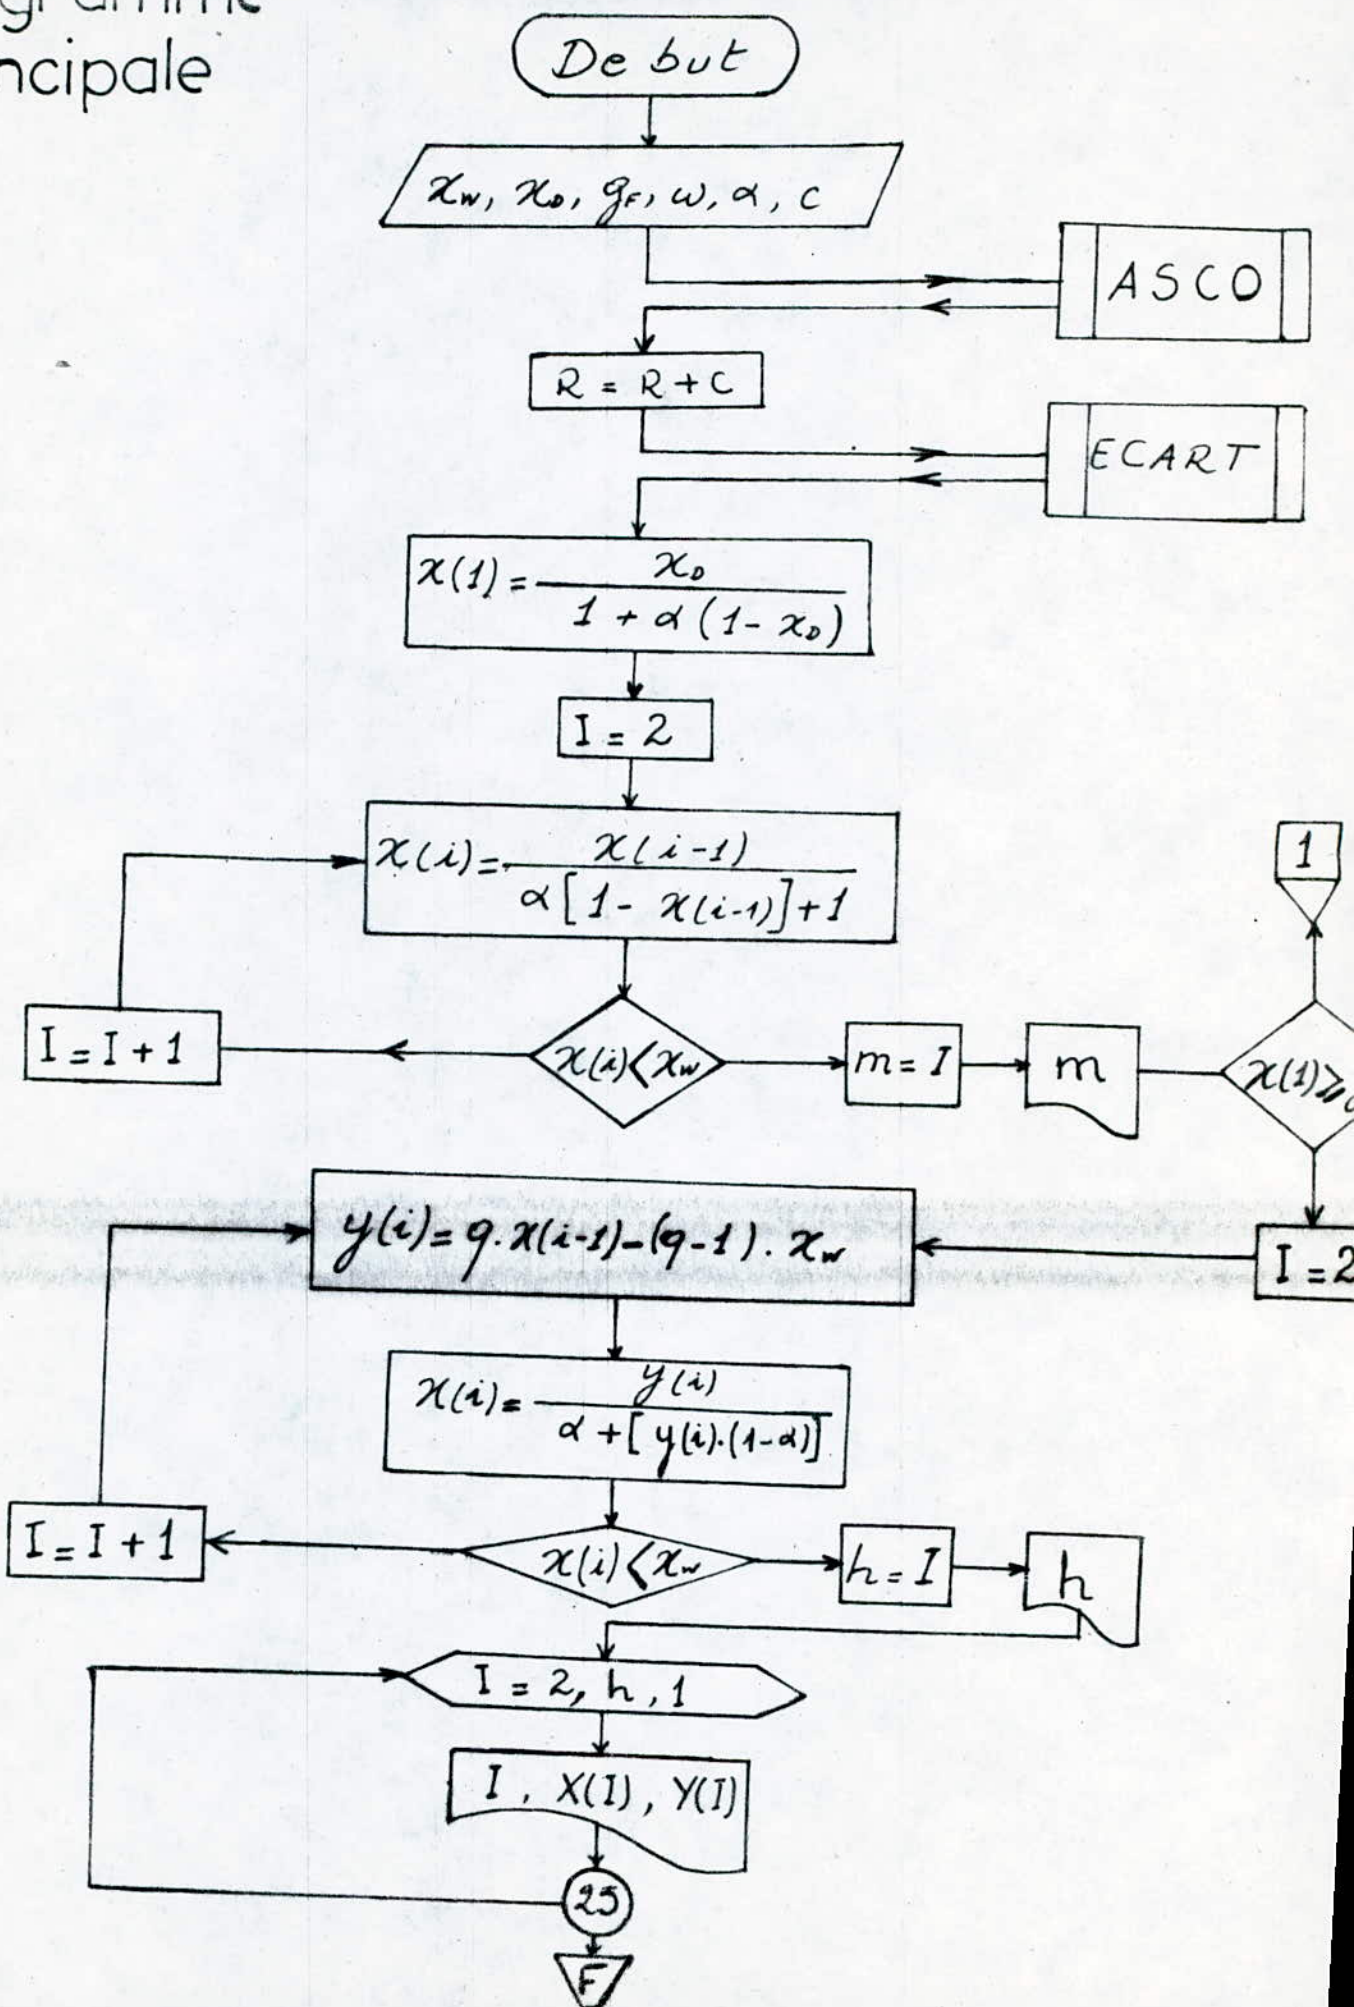 ncipale
De but
x_W, x_D, g_F, ω, α, c
ASCO
R = R + C
ECART
x(1) = x_D / 1 + α (1 - x_D)
I = 2
x(i) = x(i-1) / α [1 - x(i-1)] + 1
1
I = I + 1
x(i) < x_W
m = I
m
x(1) ≥
y(i) = q · x(i-1) - (q-1) · x_W
I = 2
x(i) = y(i) / α + [y(i)·(1-α)]
I = I + 1
x(i) < x_W
h = I
h
I = 2, h, 1
I, X(I), Y(I)
25
F